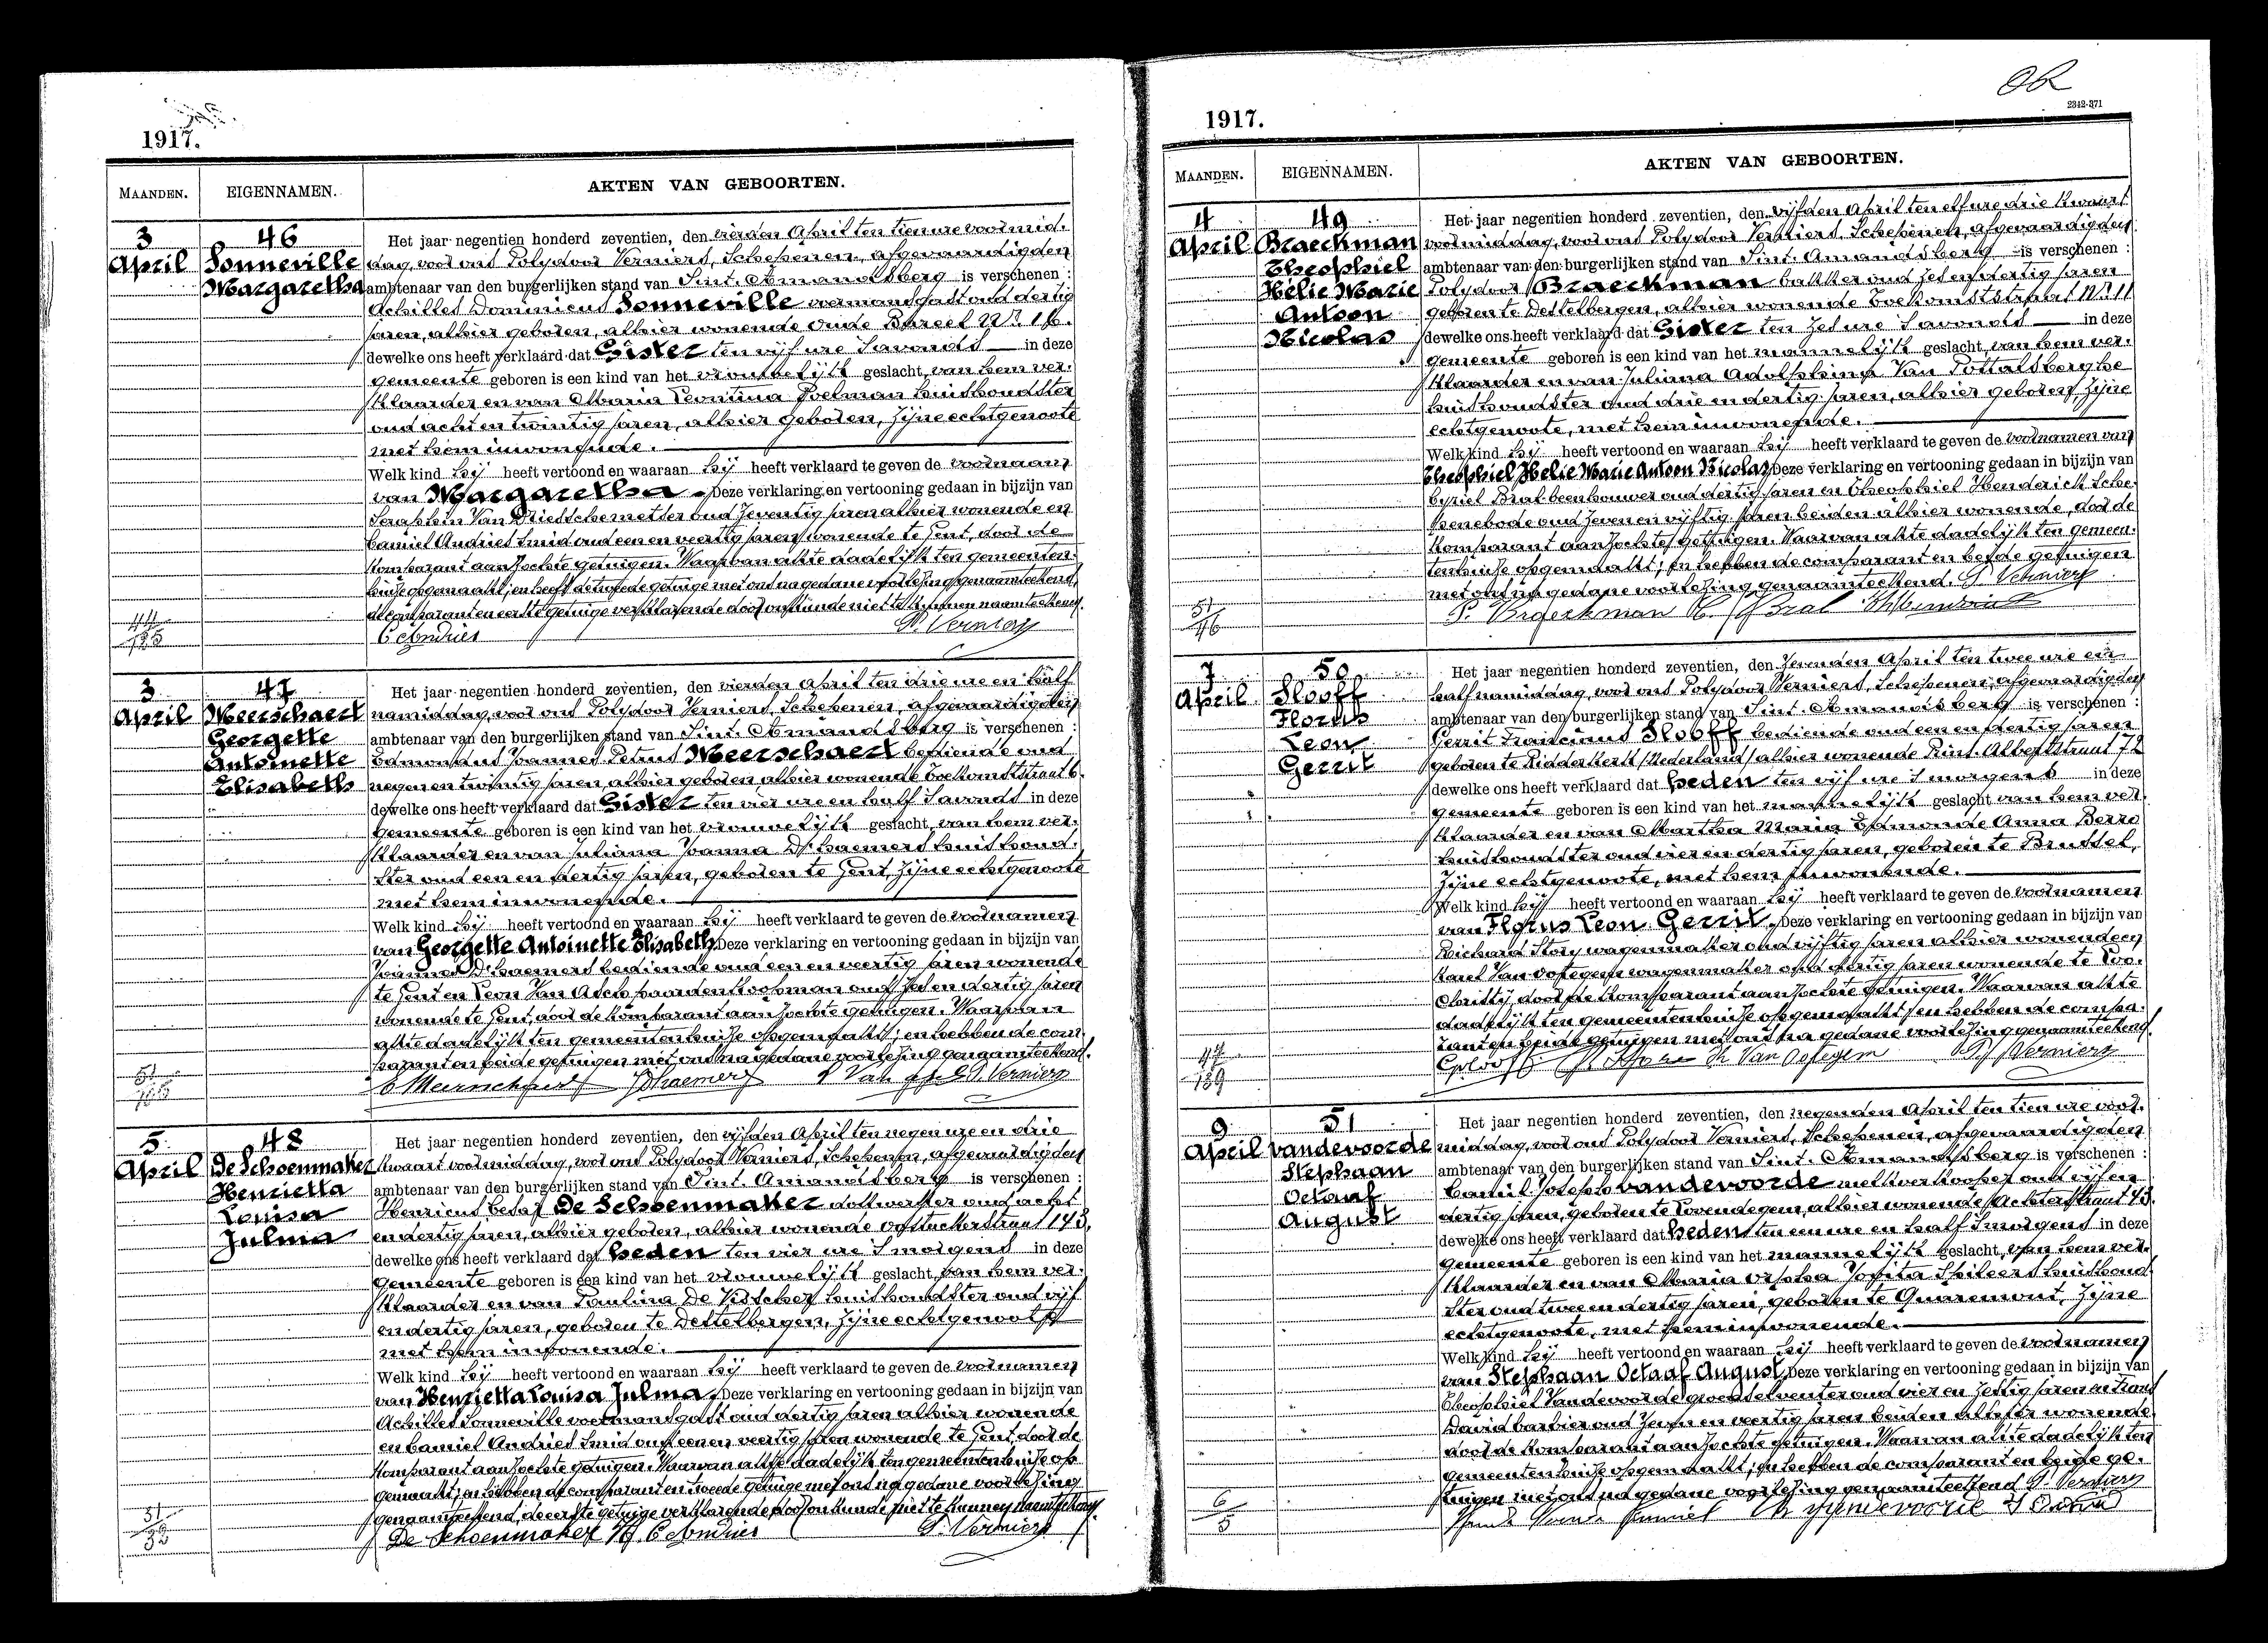 1917.
MAANDEN.
EIGENNAMEN.
AKTEN VAN GEBOORTEN.
3
April
46
Sonneville
Margaretha
Het jaar negentien honderd zeventien, den vierden April ten tien ure voormid-
dag, voor ons Polydoor Verniers, Schepenen, afgevaardigden
ambtenaar van den burgerlijken stand van Sint-Amandsberg is verschenen :
Achilles Dominicus Sonneville voermansgast oud dertig
jaren, alhier geboren, alhier wonende Oude Bareel Nr.
dewelke ons heeft verklaard dat Gister ten vijf ure s'avonds in deze
gemeente geboren is een kind van het vrouwelijk geslacht, van hem ver-
klaarder en van Maria Leontina Poelman huishoudster
oud acht en twintig jaren, alhier geboren, zijne echtgenoote
met hem inwonende.
Welk kind hij heeft vertoond en waaraan hij heeft verklaard te geven de voornaam
van Margaretha. Deze verklaring en vertooning gedaan in bijzijn van
Seraphin Van Driessche metser oud zeventig jaren alhier wonende en
Camiel Andries smid oud een en veertig jaren wonende te Gent, door de
komparant aanzochte getuigen. Waarvan akte dadelijk ten gemeenten-
huize opgemaakt; en heeft de tweede getuige met ons na gedane voorlezing genaamteekend,
de comparant en eerste getuige verklarende door onkunde niet te kunnen naamteekenen.
C Andries P. Verniers
3
April
47
Meerschaert
Georgette
Antoinette
Elisabeth
Het jaar negentien honderd zeventien, den vierden April ten drie ure en half
namiddag, voor ons Polydoor Verniers, Schepenen, afgevaardigden
ambtenaar van den burgerlijken stand van Sint-Amandsberg is verschenen :
Edmondus Joannes Petrus Meerschaert bediende oud
negen en twintig jaren, alhier geboren, alhier wonende Toekomststraat 6.
dewelke ons heeft verklaard dat Gister ten vier ure en half s'avonds in deze
gemeente geboren is een kind van het vrouwelijk geslacht, van hem ver-
klaarder en van Juliana Joanna D'haemers huishoud-
ster oud een en dertig jaren, geboren te Gent, zijne echtgenoote
met hem inwonende.
Welk kind hij heeft vertoond en waaraan hij heeft verklaard te geven de voornamen
van Georgette Antoinette Elisabeth. Deze verklaring en vertooning gedaan in bijzijn van
Joannes D'haemers bediende oud een en veertig jaren wonende
te Gent en Leon Van Assche paardenkoopman oud zes en dertig jaren
wonende te Gent, door de komparant aanzochte getuigen. Waarvan
akte dadelijk ten gemeentenhuize opgemaakt; en hebben de com-
parant en beide getuigen met ons na gedane voorlezing genaamteekend.
E Meerschaert J Dhaemers P. Verniers
5
April
48
De Schoenmaker
Henrietta
Louisa
Julma
Het jaar negentien honderd zeventien, den vijfden April ten negen ure en drie
kwaart voormiddag, voor ons Polydoor Verniers, Schepenen, afgevaardigden
ambtenaar van den burgerlijken stand van Sint-Amandsberg is verschenen :
Henricus De Schoenmaker dokwerker oud acht
en dertig jaren, alhier geboren, alhier wonende Oostackerstraat 143,
dewelke ons heeft verklaard dat heden ten vier ure s'morgens in deze
gemeente geboren is een kind van het vrouwelijk geslacht, van hem ver-
klaarder en van Paulina De Visscher huishoudster oud vijf
en dertig jaren, geboren te Destelbergen, zijne echtgenoote
met hem inwonende.
Welk kind hij heeft vertoond en waaraan hij heeft verklaard te geven de voornamen
van Henrietta Louisa Julma. Deze verklaring en vertooning gedaan in bijzijn van
Achilles Sonneville voermansgast oud dertig jaren alhier wonende
en Camiel Andries smid oud een en veertig jaren wonende te Gent, door de
komparant aanzochte getuigen. Waarvan akte dadelijk ten gemeentenhuize op-
gemaakt; en hebben de comparant en tweede getuige met ons na gedane voorlezing
genaamteekend, de eerste getuige verklarende door onkunde niet te kunnen naamteekenen.
De Schoenmaker H. C Andries P. Verniers
2342-371
1917.
MAANDEN.
EIGENNAMEN.
AKTEN VAN GEBOORTEN.
4
April
49
Braeckman
Theophiel
Helie Marie
Antoon
Nicolas
Het jaar negentien honderd zeventien, den vijfden April ten elf ure drie kwaart
voormiddag, voor ons Polydoor Verniers, Schepenen, afgevaardigden
ambtenaar van den burgerlijken stand van Sint-Amandsberg is verschenen :
Polydoor Braeckman bakker oud zes en dertig jaren
geboren te Destelbergen, alhier wonende Toekomststraat Nr. 11
dewelke ons heeft verklaard dat Gister ten zes ure s'avonds in deze
gemeente geboren is een kind van het mannelijk geslacht, van hem ver-
klaarder en van Juliana Adolphina Van Pottelsberghe
huishoudster oud drie en dertig jaren, alhier geboren, zijne
echtgenoote, met hem inwonende.
Welk kind hij heeft vertoond en waaraan hij heeft verklaard te geven de voornamen van
Theophiel Helie Marie Antoon Nicolas. Deze verklaring en vertooning gedaan in bijzijn van
Cyriel Bral beenhouwer oud dertig jaren en Theophiel Henderick sche-
penebode oud zeven en vijftig jaren beiden alhier wonende, door de
komparant aanzochte getuigen. Waarvan akte dadelijk ten gemeen-
tenhuize opgemaakt; en hebben de comparant en beide getuigen
met ons na gedane voorlezing genaamteekend. P. Verniers
P. Braeckman C. Bral
7
April
50
Slooff
Florus
Leon
Gerrit
Het jaar negentien honderd zeventien, den zevenden April ten twee ure en
half namiddag, voor ons Polydoor Verniers, Schepenen, afgevaardigden
ambtenaar van den burgerlijken stand van Sint-Amandsberg is verschenen :
Gerrit Francinus Slooff bediende oud een en dertig jaren
geboren te Ridderkerk (Nederland) alhier wonende Prins Albertstraat 72
dewelke ons heeft verklaard dat heden ten vijf ure s'morgens in deze
gemeente geboren is een kind van het mannelijk geslacht van hem ver-
klaarder en van Martha Maria Edmonde Anna Berre
huishoudster oud vier en dertig jaren, geboren te Brussel,
zijne echtgenoote, met hem inwonende.
Welk kind hij heeft vertoond en waaraan hij heeft verklaard te geven de voornamen
van Florus Leon Gerrit. Deze verklaring en vertooning gedaan in bijzijn van
Richard Story wagenmaker oud vijftig jaren alhier wonende en
Karel Van Ootegem wagenmaker oud dertig jaren wonende te Loo-
christy, door de komparant aanzochte getuigen. Waarvan akte
dadelijk ten gemeentenhuize opgemaakt; en hebben de compa-
rant en beide getuigen met ons na gedane voorlezing genaamteekend.
GSlooff Van Ootegem P. Verniers
9
April
51
vandevoorde
Stephaan
Octaaf
August
Het jaar negentien honderd zeventien, den negenden April ten tien ure voor-
middag, voor ons Polydoor Verniers, Schepenen, afgevaardigden
ambtenaar van den burgerlijken stand van Sint-Amandsberg is verschenen :
Camiel Joseph vandevoorde melkverkooper oud vijf en
dertig jaren, geboren te Lovendegem, alhier wonende Achterstraat 43.
dewelke ons heeft verklaard dat heden ten een ure en half s'morgens in deze
gemeente geboren is een kind van het mannelijk geslacht, van hem ver-
klaarder en van Maria Orpha Spileers huishoud-
ster oud twee en dertig jaren, geboren te Quaremont, zijne
echtgenoote, met hem inwonende.
Welk kind hij heeft vertoond en waaraan hij heeft verklaard te geven de voornamen
van Stephaan Octaaf August. Deze verklaring en vertooning gedaan in bijzijn van
Theophiel Vandevoorde groenselventer oud vier en zestig jaren en Frans
David barbier oud zeven en veertig jaren beiden alhier wonende
door de komparant aanzochte getuigen. Waarvan akte dadelijk ten
gemeentenhuize opgemaakt; en hebben de comparant en beide ge-
tuigen met ons na gedane voorlezing genaamteekend P. Verniers